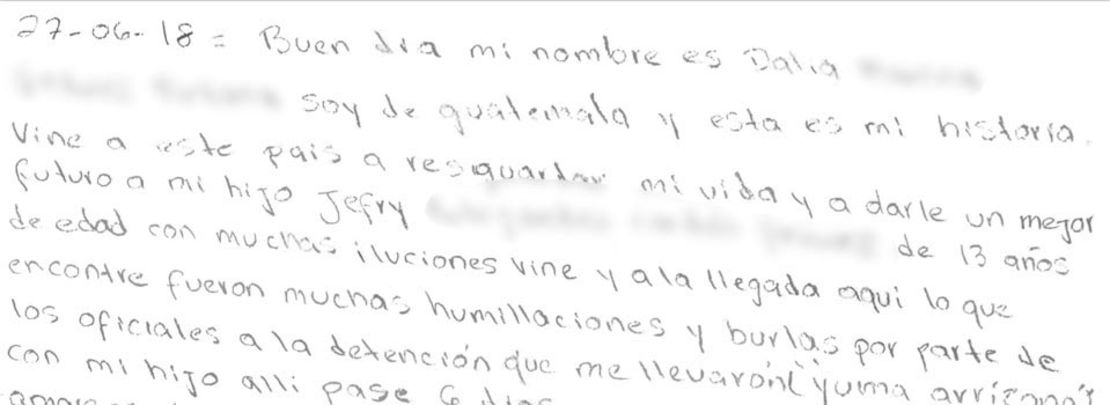 27-06-18 = Buen dia mi nombre es Dalia
soy de guatemala y esta es mi historia.
Vine a este pais a resguardar mi vida y a darle un mejor
futuro a mi hijo Jefry de 13 años
de edad con muchas iluciones vine y a la llegada aqui lo que
encontre fueron muchas humillaciones y burlas por parte de
los oficiales a la detención que me llevaron "yuma arrizona"
con mi hijo alli pase 6 dias